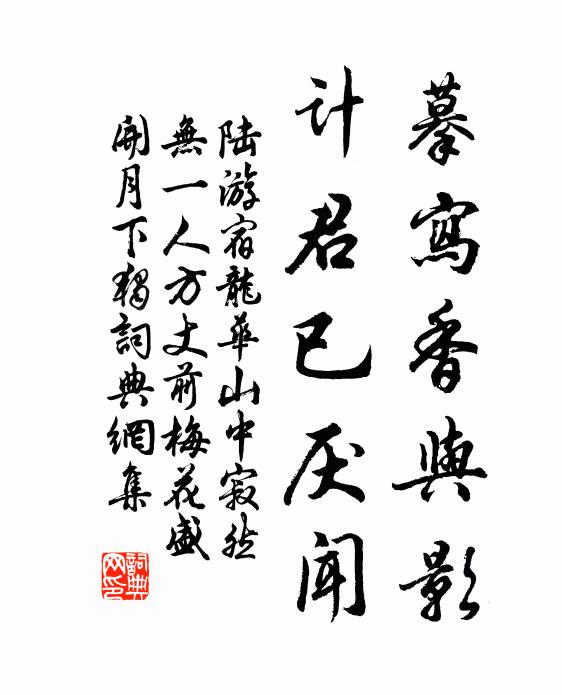 摹寫香與影
計君已厌聞
陆游宿龍華山中寂然
無一人方丈前梅花盛
開月下獨詞典網集
詞典
网印